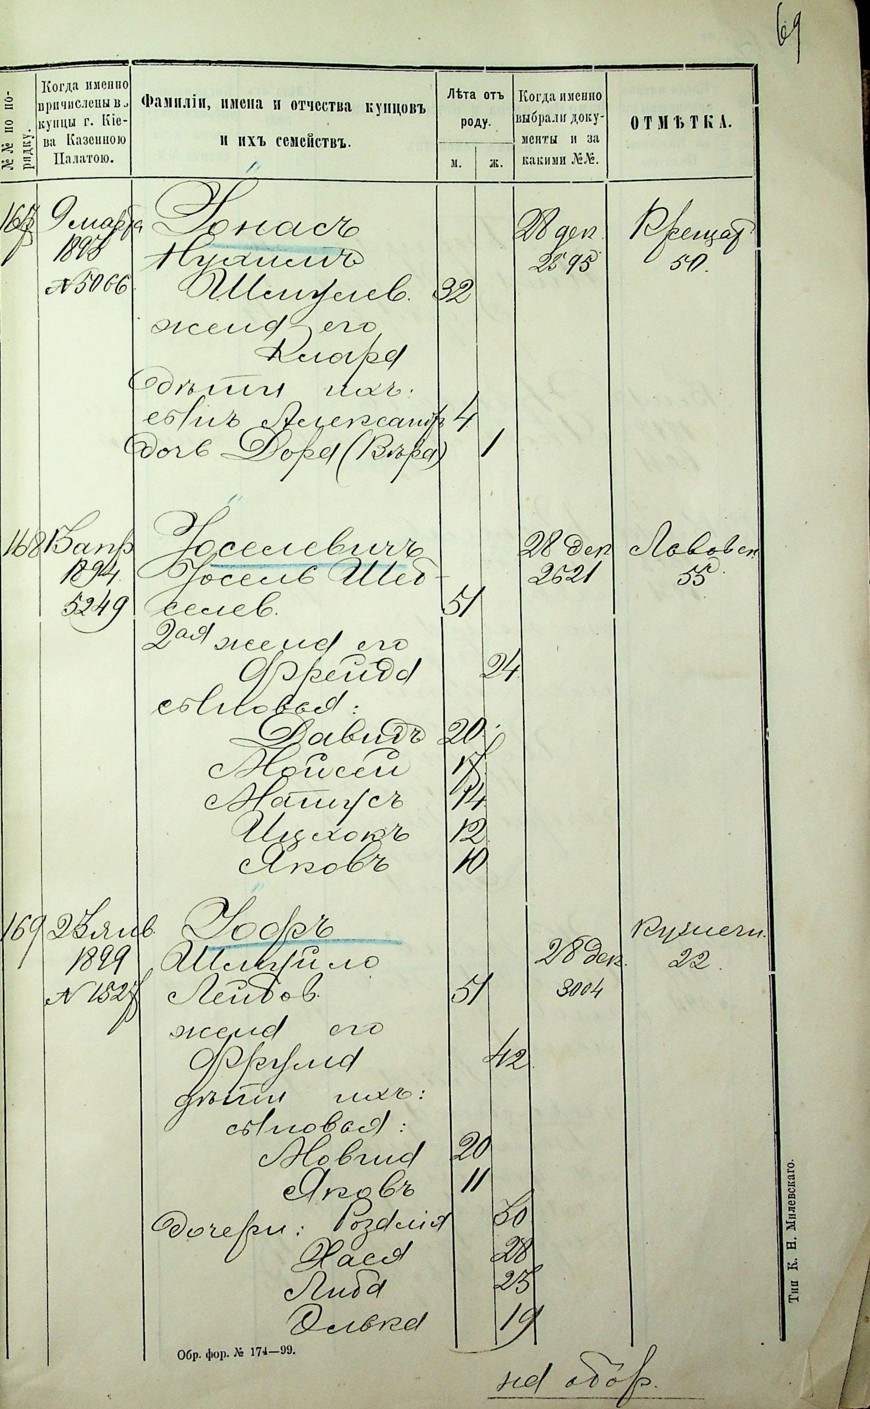 69
№№ по по-
рядку.
Когда именно
причислены въ
купцы г. Кіе-
ва Казенною
Палатою.
Фамиліи, имена и отчества купцовъ
и ихъ семействъ.
Лѣта отъ
роду.
м. ж.
Когда именно
выбрали доку-
менты и за
какими №№.
ОТМѢТКА.
167 9 марта Іонасъ 28 дек. Крещат
1893 Нухимъ 2595 50.
№ 5066 Шмулев. 32
жена его
Клара
дѣти ихъ:
сынъ Александръ 4
дочь Дора (Вѣра) 1
168 13 апр Іоселевичъ 28 дек Львовск
1894 Іосель Шев- 2521 55
5249 селев. 51
2ая жена его
Фрейда 24
сыновья:
Давидъ 20
Мойсей 17
Матусъ 14
Ицхокъ 12
Яковъ 10
169 23 янв Іофъ Кузнечн.
1899 Шмуйло 28 дек. 22
№ 1527 Лейбов. 51 3004
жена его
Фрума 42
дѣти ихъ:
сыновья:
Мовша 20
Яковъ 11
дочери: Розалія 30
Хася 28
Либа 23
Элька 19
Обр. фор. № 174—99.
на обор.
Тип К. Н. Милевскаго.